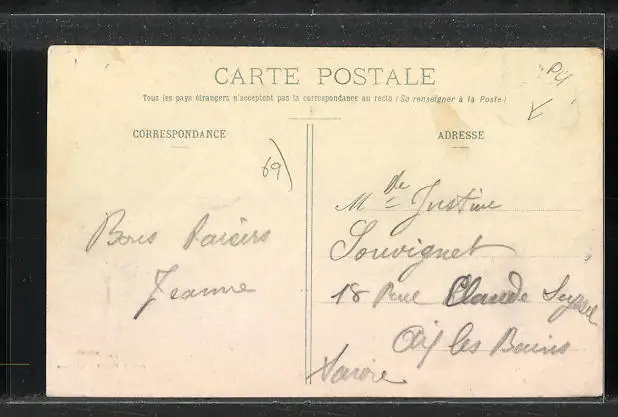 CARTE POSTALE
Tous les pays étrangers n'acceptent pas la correspondance au recto (Se renseigner à la Poste)
CORRESPONDANCE
ADRESSE
69)
Bons Baisers
Jeanne
Mde Justine
Souvignet
18 Rue Claude
Aix les Bains
Savoie